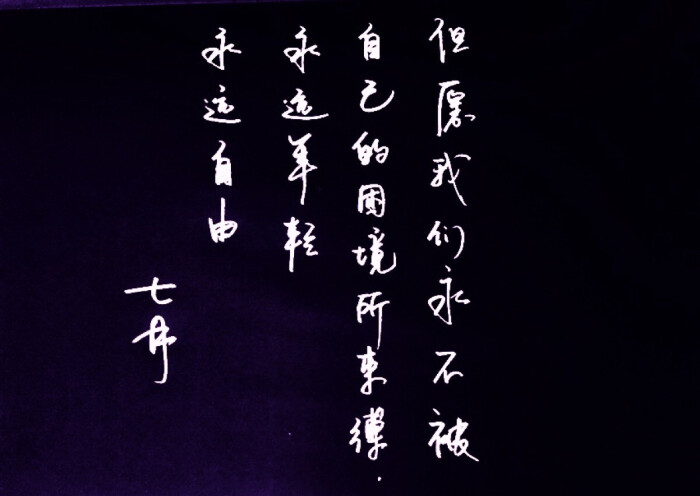 但愿我们永不被
自己的困境所束缚.
永远年轻
永远自由
七